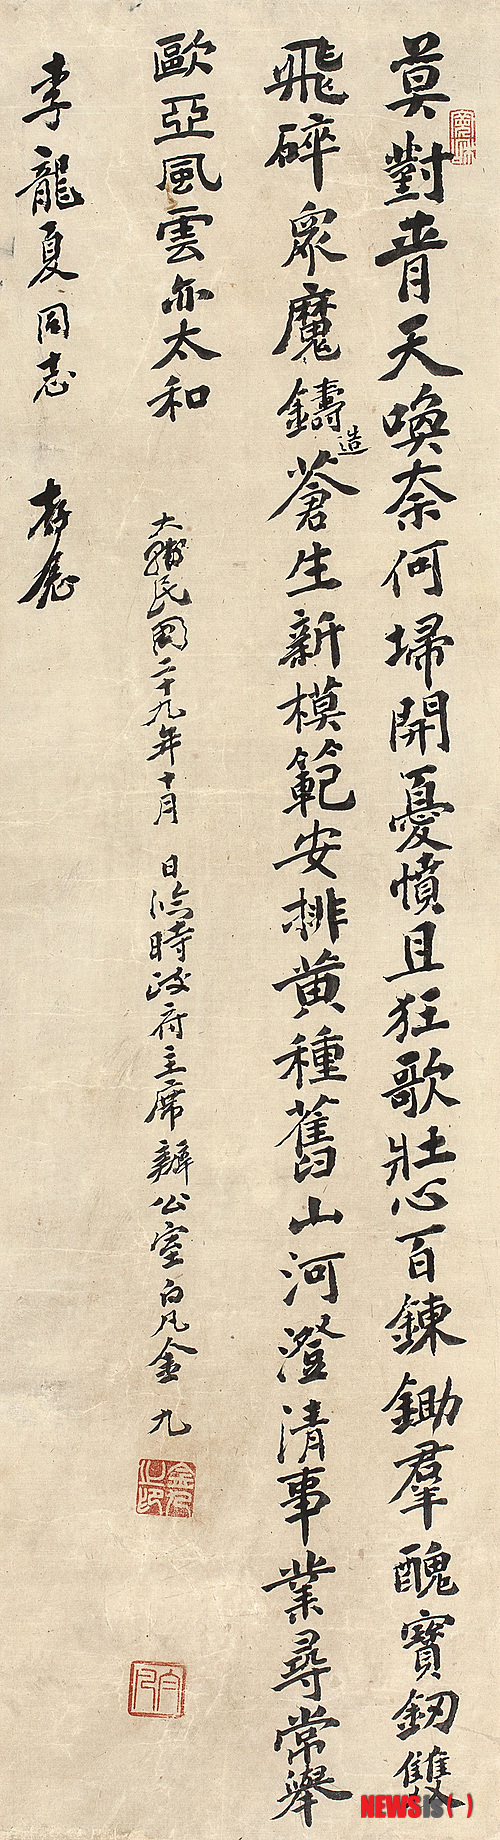 莫對青天喚奈何埽開憂憤且狂歌壯心百鍊鋤羣醜寶釰雙
飛碎衆魔鑄造蒼生新模範安排黃種舊山河澄清事業尋常擧
歐亞風雲亦太和
大韓民國二十九年十月 日臨時政府主席辦公室白凡金九
金九之印
白凡
李龍夏同志 存念
NEWSIS